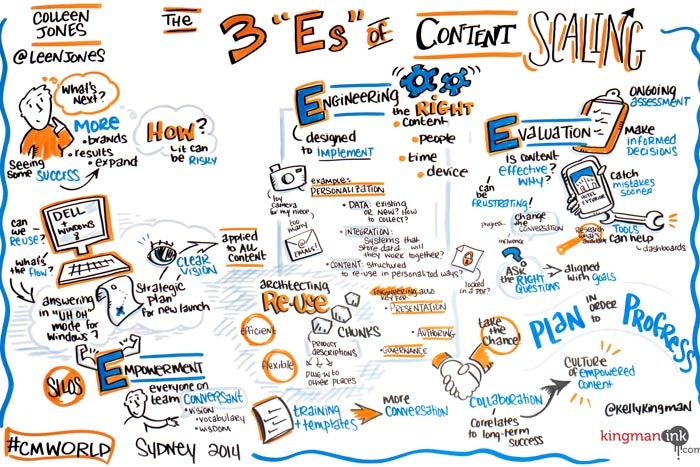 COLLEEN
JONES
@LEENJONES
THE
3 "Es" OF
CONTENT
SCALING
WHAT'S
NEXT?
MORE
• brands
• results
• expand
Seeing
some SUCCESS
HOW?
it can
be RISKY
ENGINEERING
the RIGHT
content
• people
• time
• device
designed
to IMPLEMENT
example:
PERSONALIZATION
toy
camera
for my niece
too
many
@
EMAILS!
• DATA: existing
or NEW? How
to collect?
• INTEGRATION:
systems that
store data... will
they work together?
• CONTENT: structured
to re-use in personalized ways?
locked
in a PDF?
EVALUATION
ONGOING
ASSESSMENT
MAKE
INFORMED
DECISIONS
is content
effective?
WHY?
can
be
FRUSTRATING!
CATCH
mistakes
sooner
HOTEL
change
the
CONVERSATION
influence
ASK
the RIGHT
QUESTIONS
aligned
with goals
TOOLS
can help
dashboards
can
we
REUSE?
DELL
+
WINDOWS
8
what's
the flow?
answering
in "UH OH"
mode for
Windows 7
CLEAR
VISION
applied
to ALL
CONTENT
Strategic
Plan
for new launch
architecting
RE-USE
efficient
flexible
CHUNKS
PRODUCT
descriptions
PLUG IN TO
other places
ENGINEERING also
KEY FOR:
• PRESENTATION
• AUTHORING
• GOVERNANCE
SILOS
EMPOWERMENT
everyone on
team CONVERSANT
• VISION
• vocabulary
• WISDOM
TRAINING
+ templates
MORE
CONVERSATION
take
the
Chance!
COLLABORATION
Correlates
to long-term
success
PLAN IN
ORDER
to PROGRESS
CULTURE
of empowered
Content
@KellyKingman
kingmanink.com
#CMWORLD
SYDNEY 2014